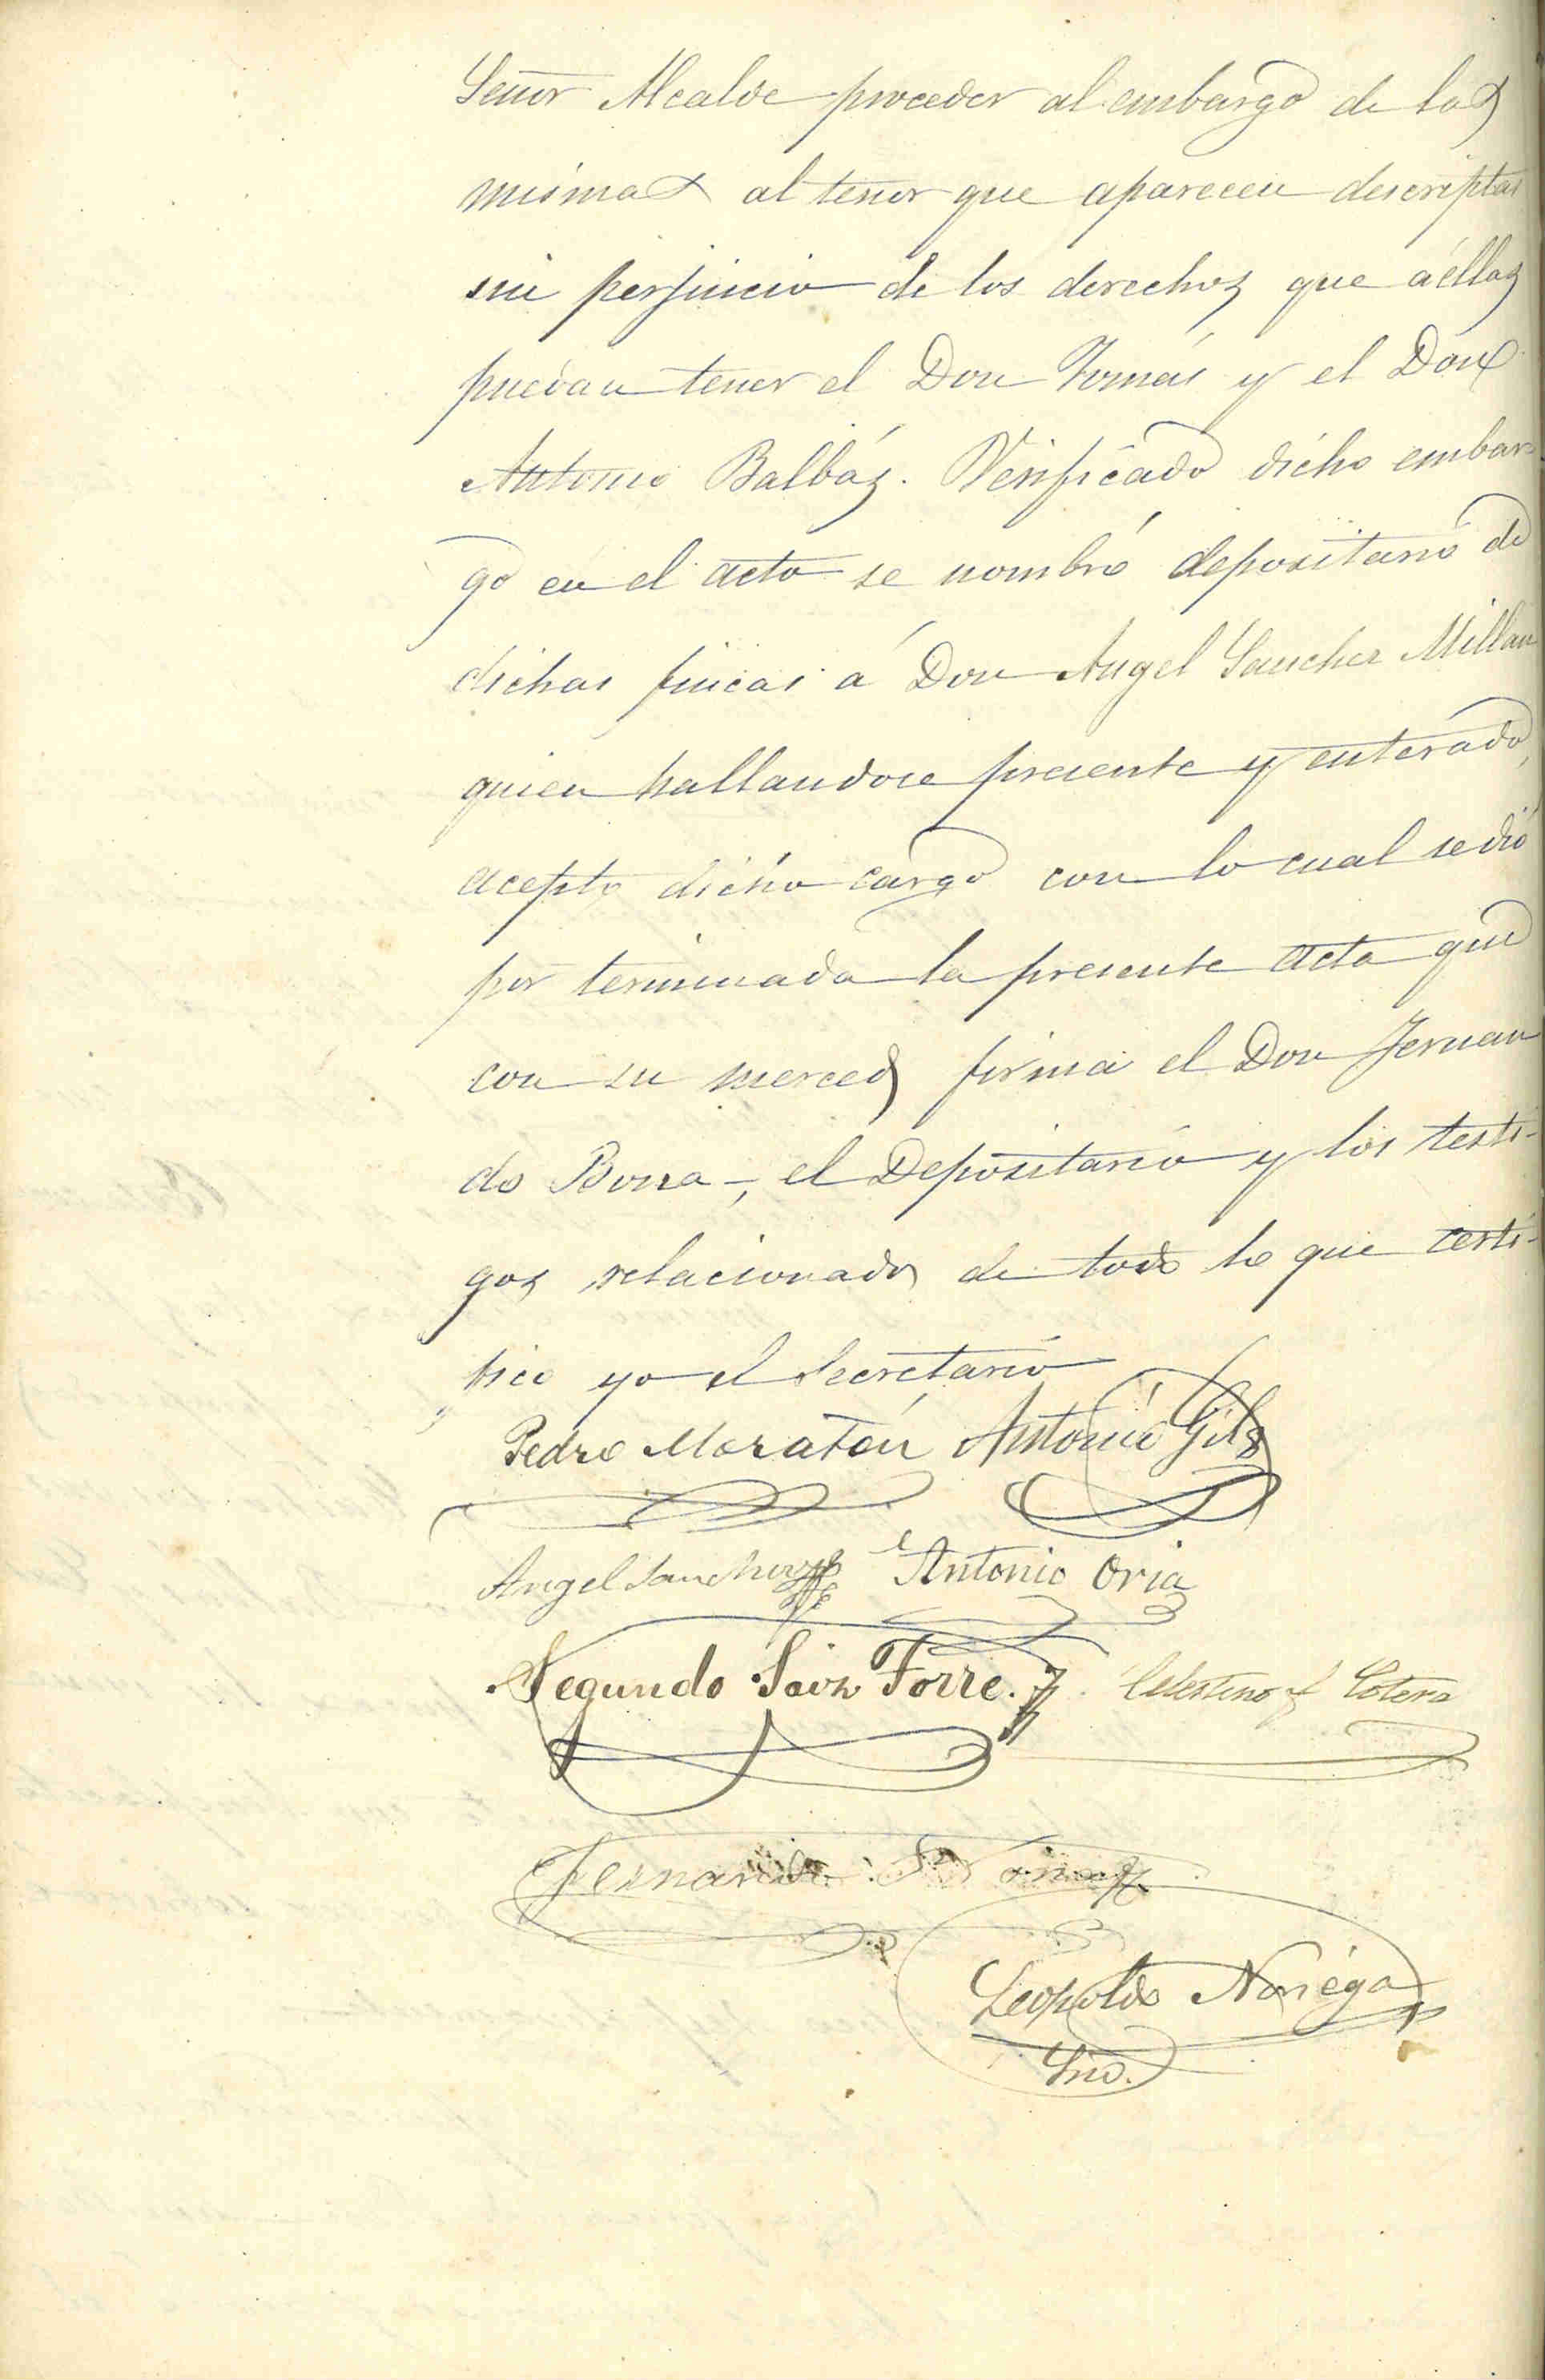 Señor Alcalde proceder al embargo de las
mismas al tenor que aparecen descriptas
sin perjuicio de los derechos que a éllas
puedan tener el Don Tomás y el Don
Antonio Balbás. Verificado dicho embar-
go en el acto se nombró depositario de
dichas fincas á Don Angel Sanchez Millan
quien hallandose presente y enterado,
acepto dicho cargo con lo cual se dió
por terminada la presente acta que
con su merced firma el Don Fernan
do Borra, el Depositario y los testi-
gos relacionados de todo lo que certi-
fico yo el Secretario
Pedro Moratón Antonio Gil
Angel Sanchez Antonio Oria
Segundo Saiz Torre. Celestino Cotera
Fernando
Leopoldo Noriega
Srio.